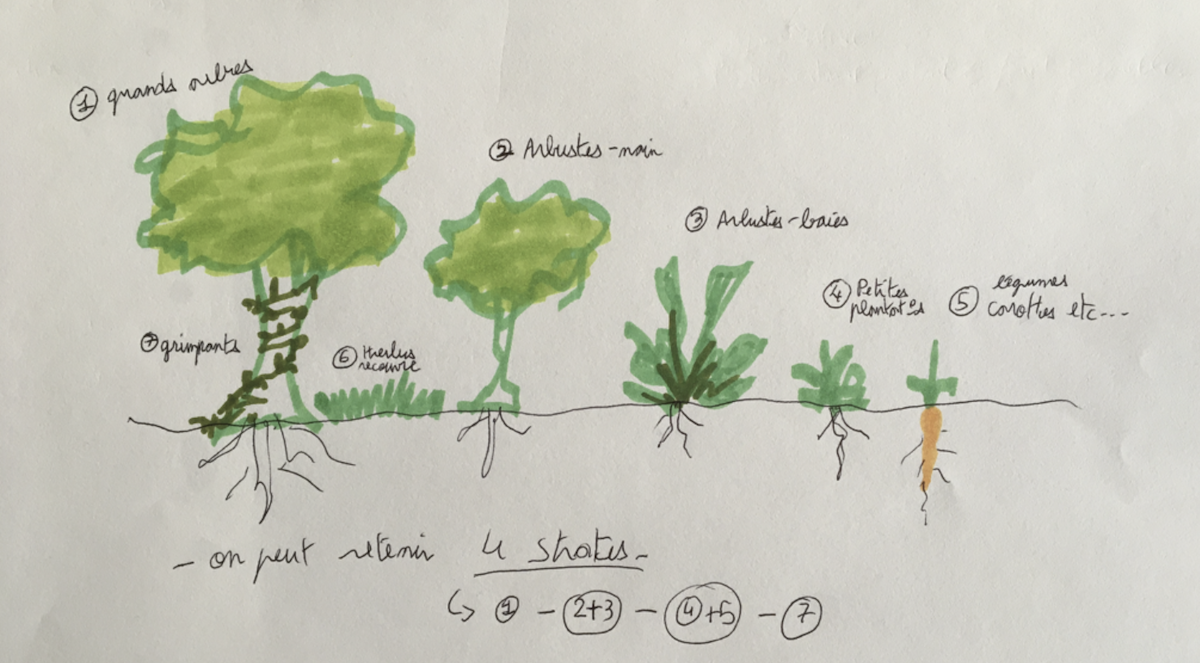 ① grands arbres
② Arbustes-nain
③ Arbustes-baies
④ Petites
plantat°s
⑤ légumes
carottes etc---
⑦ grimpants
⑥ Herbes
recouvre
- on peut retenir 4 strates -
↳ ① - (2+3) - (④+5) - ⑦